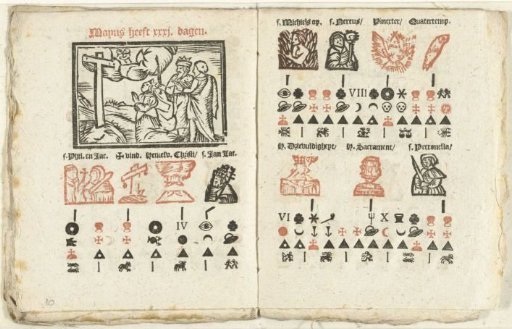 Mayus heeft xxxj. dagen.
s. Phil. en Jac. ✠ vind. Christi/ s. Jan Lat.
IV
s. Michiels op. s. Nereus/ Pinxter/ Quatertemp.
VIII
H. Dryevuldigheyt/ H. Sacrament/ s. Petronella/
VI X
30